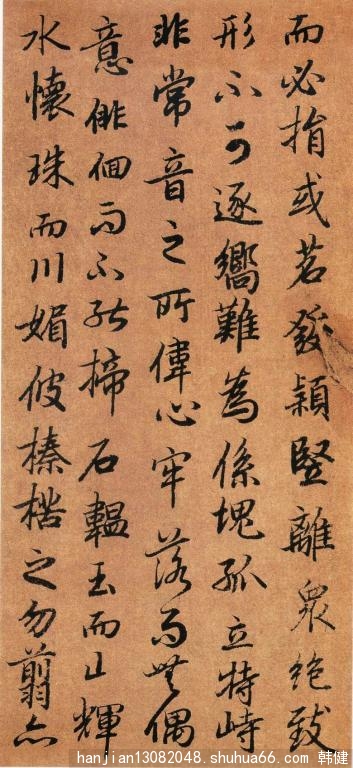 而必捐或苕發穎竪離衆絶致
形不可逐嚮難為係塊孤立特峙
非常音之所偉心牢落而無偶
意俳佪而不能揥石輼玉而山輝
水懷珠而川媚彼榛楛之勿翦亦
hanjian13082048.shuhua66.com 韩健